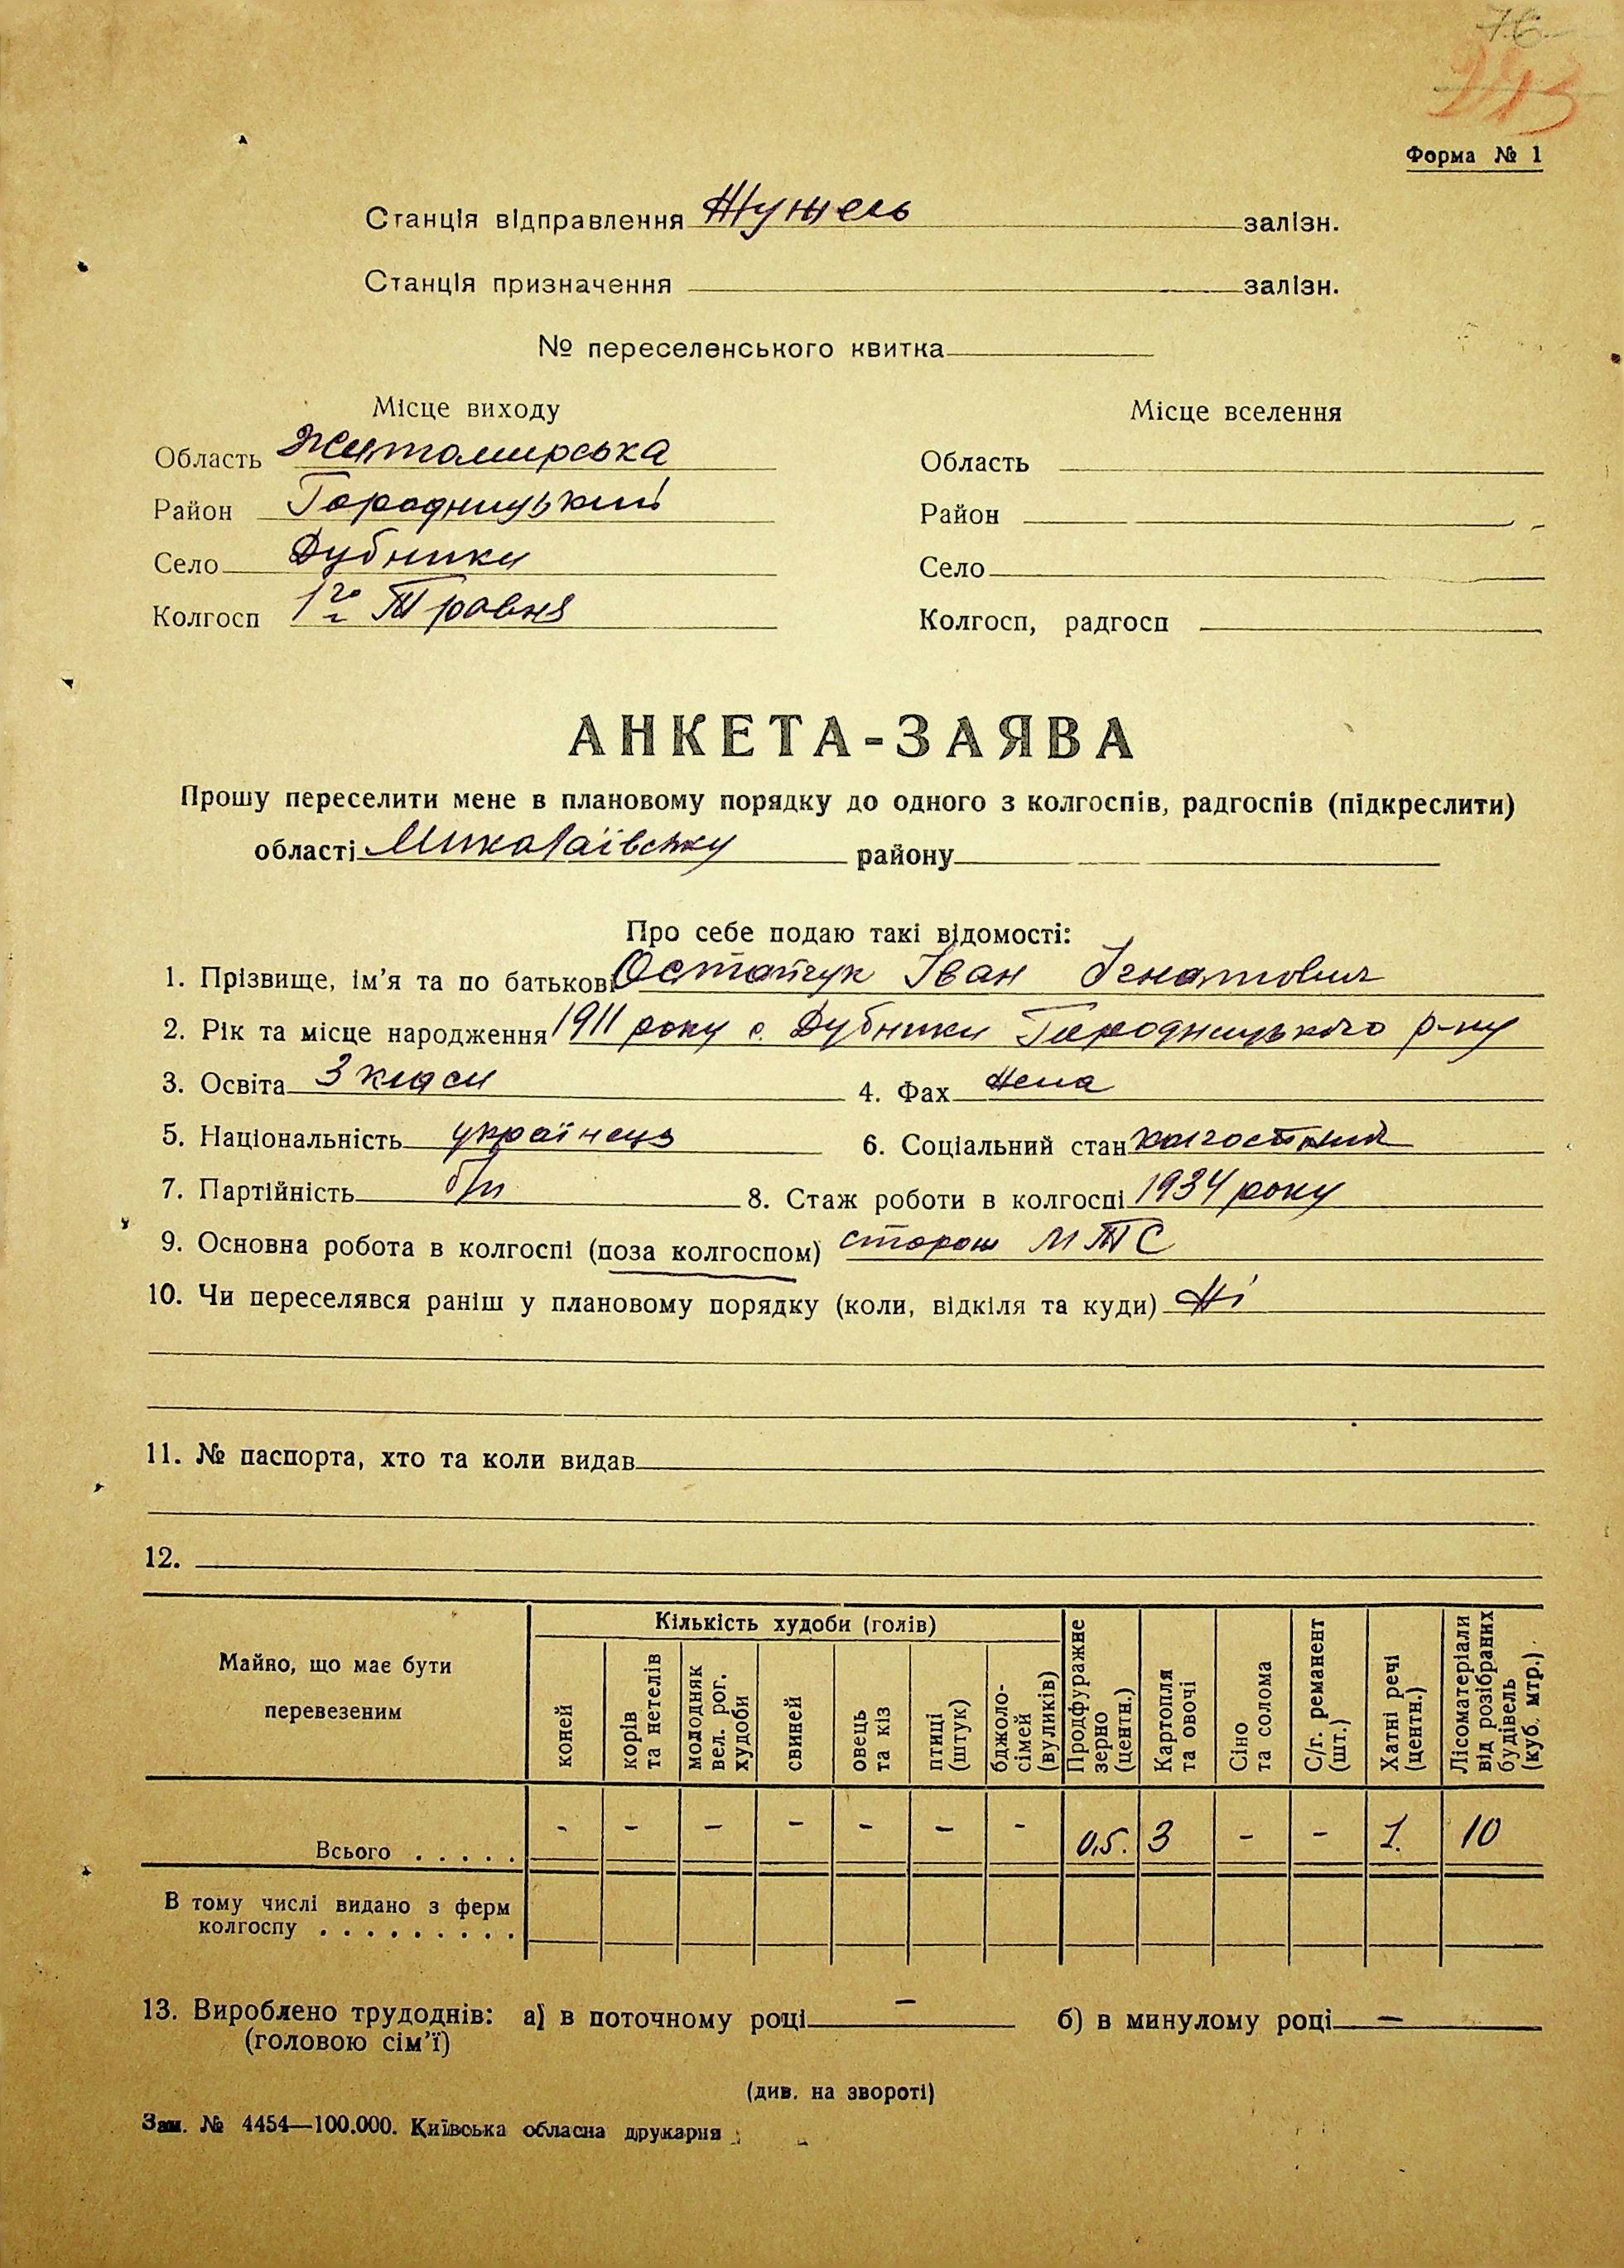 76
243
Форма № 1
Станція відправлення Жужель залізн.
Станція призначення залізн.
№ переселенського квитка
Місце виходу Місце вселення
Область Житомирська Область
Район Городницький Район
Село Дубники Село
Колгосп 1го Травня Колгосп, радгосп
АНКЕТА-ЗАЯВА
Прошу переселити мене в плановому порядку до одного з колгоспів, радгоспів (підкреслити)
області Миколаївську району
Про себе подаю такі відомості:
1. Прізвище, ім'я та по батькові Остапчук Іван Ігнатович
2. Рік та місце народження 1911 року с. Дубники Городницького р-ну
3. Освіта 3 класи 4. Фах нема
5. Національність українець 6. Соціальний стан колгоспний
7. Партійність б/п 8. Стаж роботи в колгоспі 1934 року
9. Основна робота в колгоспі (поза колгоспом) сторож МТС
10. Чи переселявся раніш у плановому порядку (коли, відкіля та куди) Ні
11. № паспорта, хто та коли видав
12.
Майно, що має бути перевезеним
Кількість худоби (голів)
коней
корів та нетелів
молодняк вел. рог. худоби
свиней
овець та кіз
птиці (штук)
бджоло-сімей (вуликів)
Продфуражне зерно (центн.)
Картопля та овочі
Сіно та солома
С/г. реманент (шт.)
Хатні речі (центн.)
Лісоматеріали від розібраних будівель (куб. мтр.)
Всього . . . . . - - - - - - - 0,5. 3 - - 1. 10
В тому числі видано з ферм
колгоспу . . . . . . . . .
13. Вироблено трудоднів: а) в поточному році — б) в минулому році —
(головою сім'ї)
(див. на звороті)
Зам. № 4454—100.000. Київська обласна друкарня